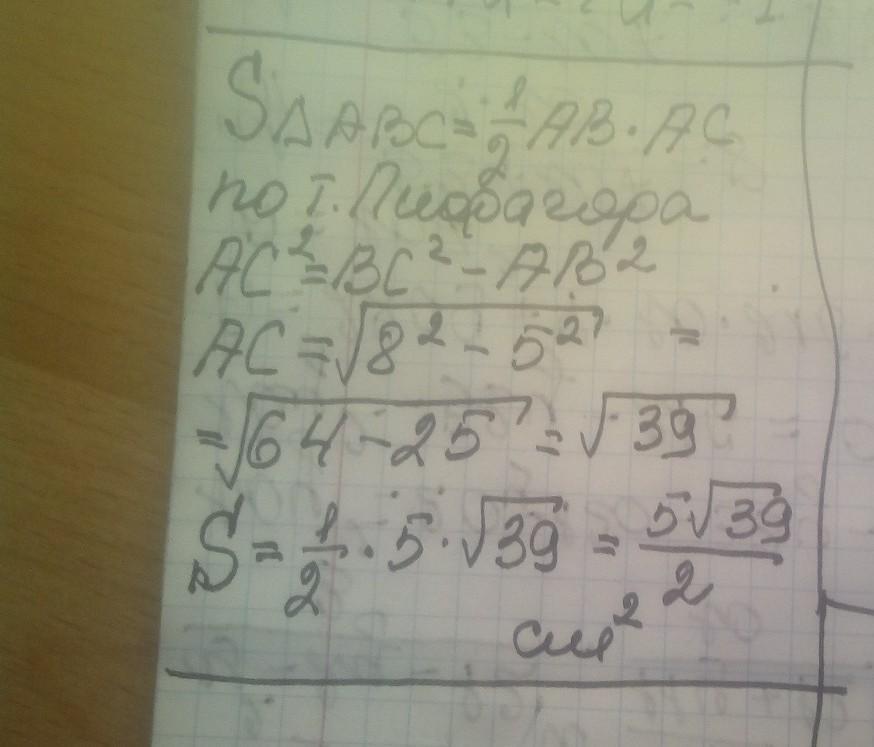 S△ABC = 1/2 AB · AC
по т. Пифагора
AC² = BC² - AB²
AC = √(8² - 5²) =
= √(64 - 25) = √39
S = 1/2 · 5 · √39 = 5√39/2
см²